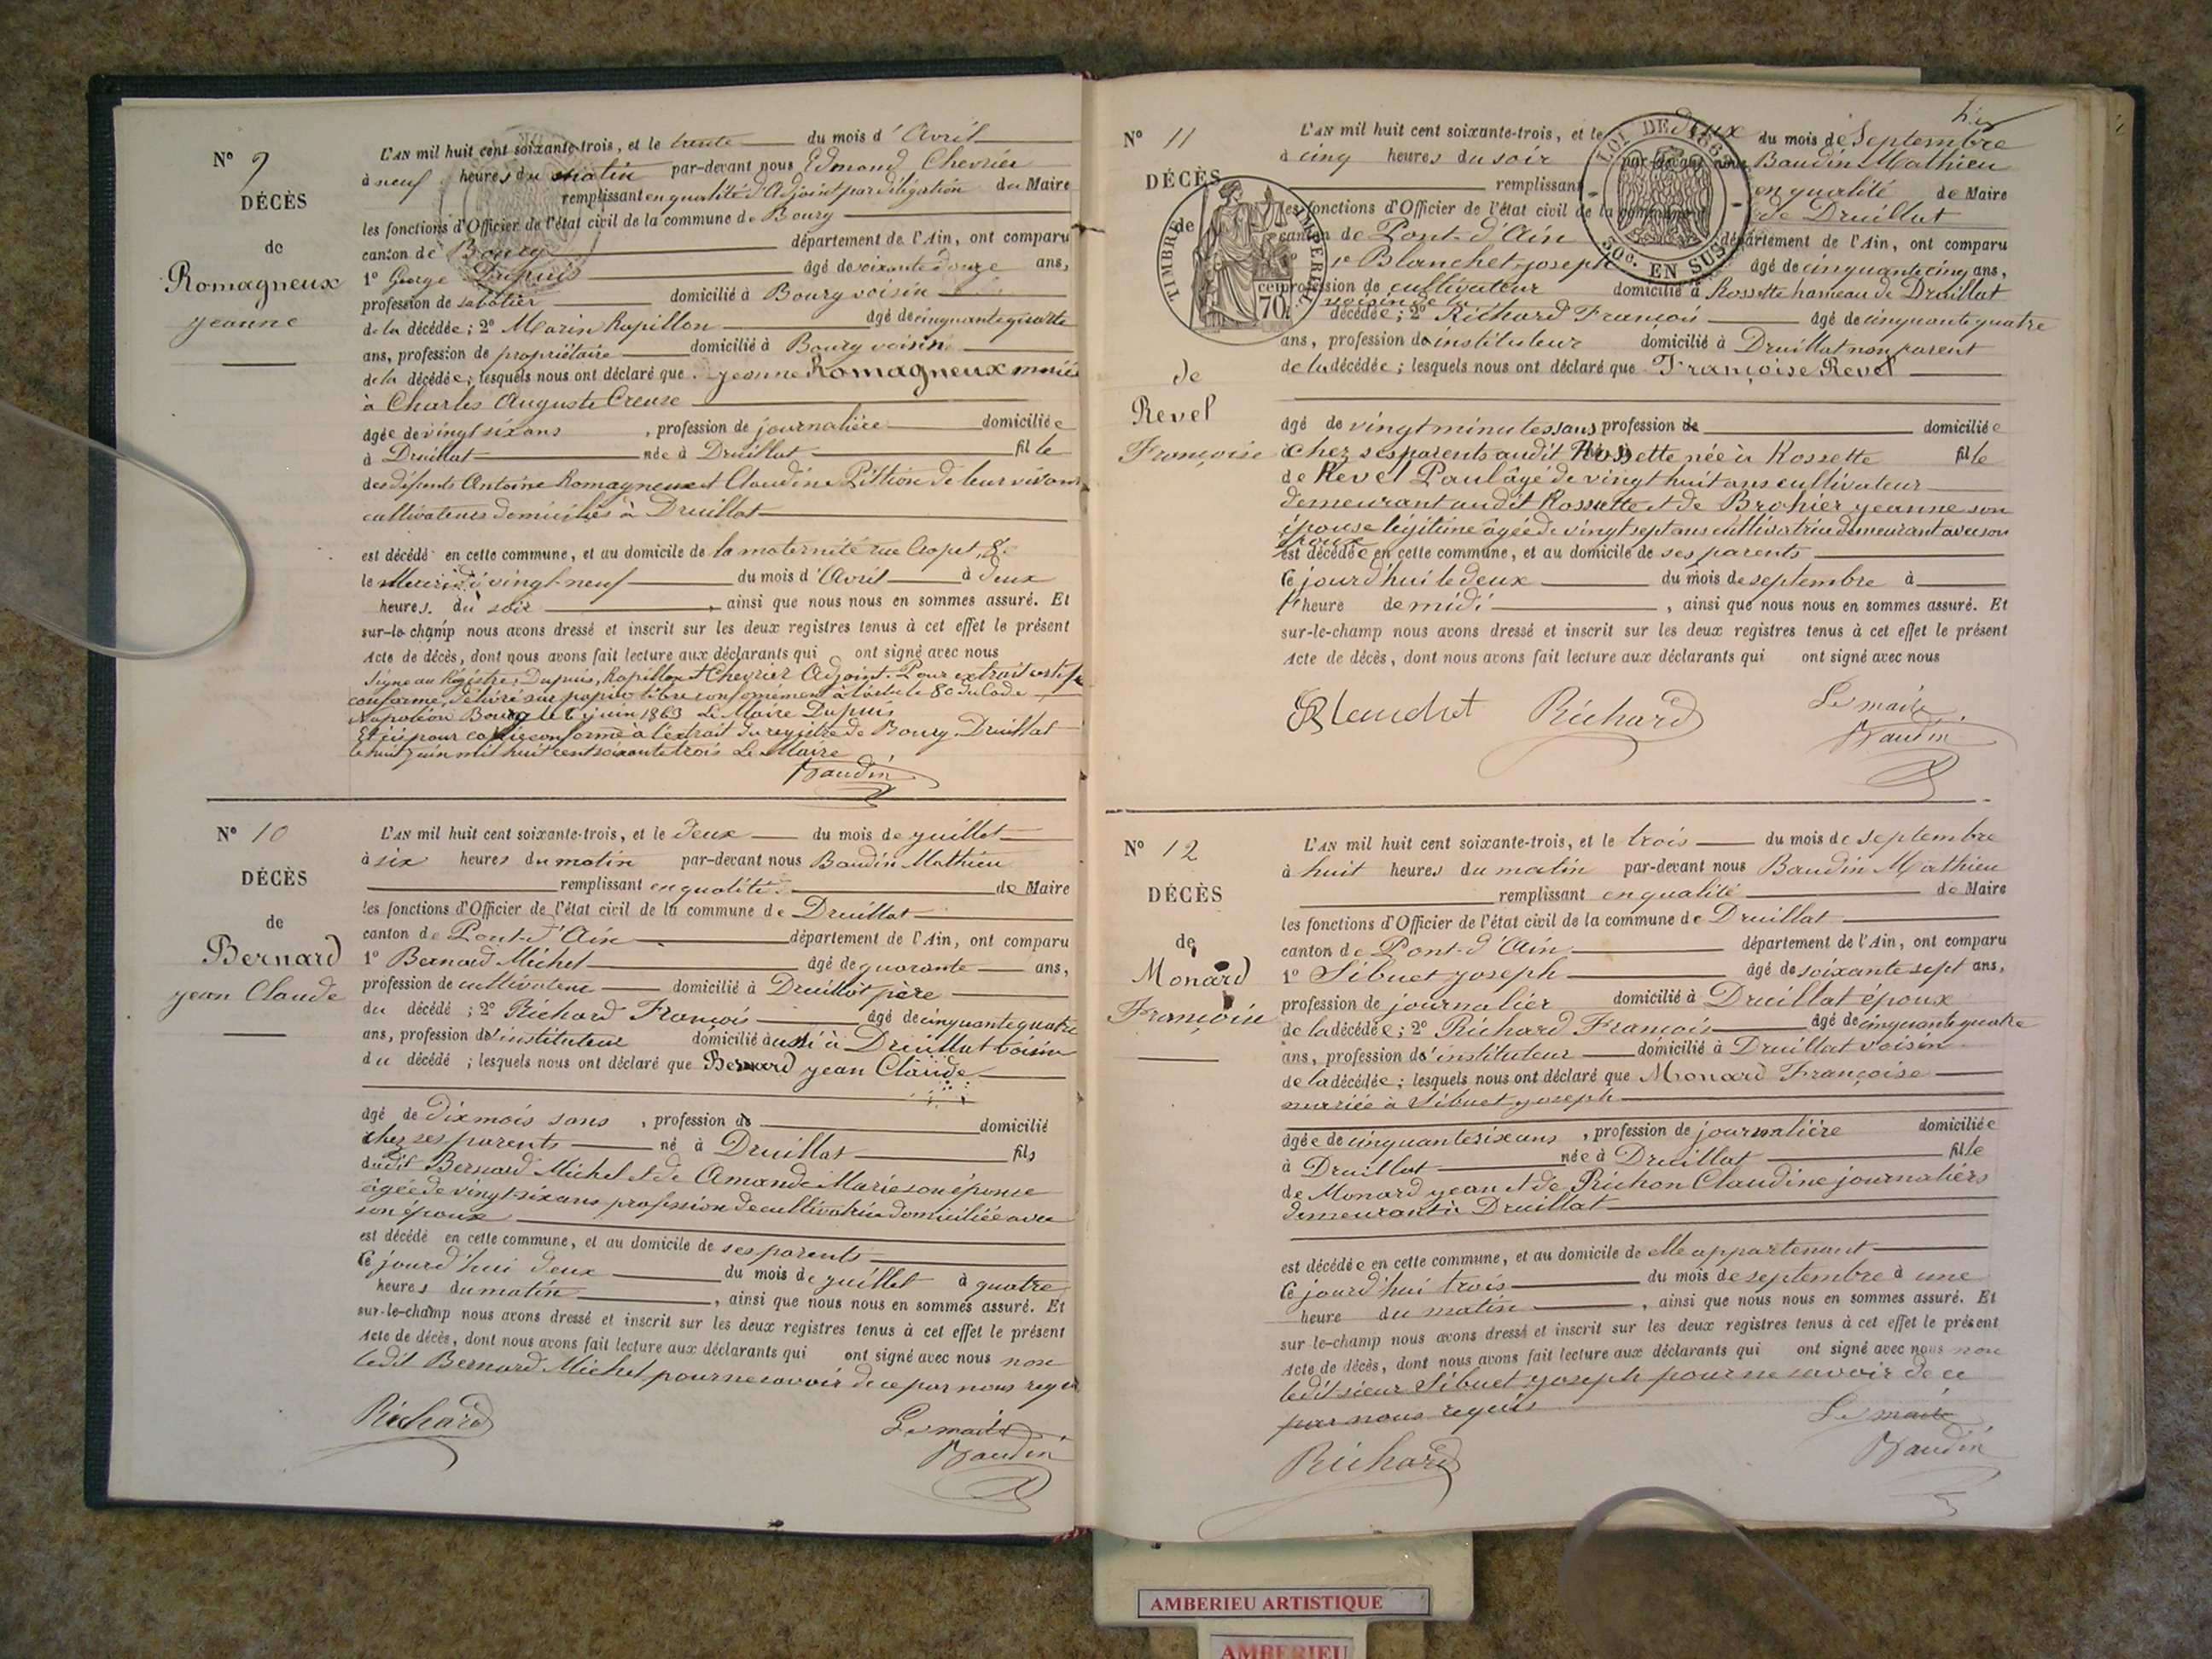 N° 9
DÉCÈS
de
Romagneux
jeanne
L'AN mil huit cent soixante-trois, et le trente du mois d'Avril
à neuf heures du matin par-devant nous Edmond Chevrier
remplissant en qualité d'Adjoint par délégation du Maire
les fonctions d'Officier de l'état civil de la commune de Bourg
canton de Bourg département de l'Ain, ont comparu
1° George Dupuis âgé de soixante douze ans,
profession de sabotier domicilié à Bourg voisin
de la décédée ; 2° Marin Rapillon âgé de cinquante quatre
ans, profession de propriétaire domicilié à Bourg voisin
de la décédée ; lesquels nous ont déclaré que jeanne Romagneux mariée
à Charles Auguste Creuse
âgée de vingt six ans , profession de journalière domiciliée
à Druillat née à Druillat fille
des défunts Antoine Romagneux et Claudine Pittion de leur vivant
cultivateurs domiciliés à Druillat
est décédé en cette commune, et au domicile de la maternité rue Crapet, 8.
le Mercredi vingt-neuf du mois d'Avril à deux
heures du soir , ainsi que nous nous en sommes assuré. Et
sur-le-champ nous avons dressé et inscrit sur les deux registres tenus à cet effet le présent
Acte de décès, dont nous avons fait lecture aux déclarants qui ont signé avec nous
Signé au Régistre, Dupuis, Rapillon et Chevrier Adjoint. Pour extrait certifié
conforme, délivré sur papier libre conformément à l'article 80 du Code
Napoléon Bourg le 6 juin 1863 Le Maire Dupuis
Et pour copie conforme à l'extrait du registre de Bourg Druillat
le huit juin mil huit cent soixante trois Le Maire
Baudin
N° 10
DÉCÈS
de
Bernard
jean Claude
L'AN mil huit cent soixante-trois, et le deux du mois de juillet
à six heures du matin par-devant nous Baudin Mathieu
remplissant en qualité de Maire
les fonctions d'Officier de l'état civil de la commune de Druillat
canton de Pont-d'Ain département de l'Ain, ont comparu
1° Bernard Michel âgé de quarante ans,
profession de cultivateur domicilié à Druillat père
du décédé ; 2° Richard François âgé de cinquante quatre
ans, profession d'instituteur domicilié aussi à Druillat voisin
du décédé ; lesquels nous ont déclaré que Bernard jean Claude
âgé de dix mois sans , profession de domicilié
chez ses parents né à Druillat fils
dudit Bernard Michel et de Amande Marie son épouse
âgée de vingt-six ans profession de cultivatrice domiciliée avec
son époux
est décédé en cette commune, et au domicile de ses parents
Ce jourd'hui deux du mois de juillet à quatre
heures du matin , ainsi que nous nous en sommes assuré. Et
sur-le-champ nous avons dressé et inscrit sur les deux registres tenus à cet effet le présent
Acte de décès, dont nous avons fait lecture aux déclarants qui ont signé avec nous non
ledit Bernard Michel pour ne savoir de ce par nous requis
Richard
Le maire
Baudin
N° 11
DÉCÈS
de
de
Revel
Françoise
TIMBRE IMPERIAL
70c
LOI DE 1862
50c. EN SUS
L'AN mil huit cent soixante-trois, et le deux du mois de Septembre
à cinq heures du soir par-devant nous Baudin Mathieu
remplissant en qualité de Maire
les fonctions d'Officier de l'état civil de la commune de Druillat
canton de Pont-d'Ain département de l'Ain, ont comparu
1° Blanchet joseph âgé de cinquante cinq ans,
profession de cultivateur domicilié à Rossette hameau de Druillat
voisin de la
décédée ; 2° Richard François âgé de cinquante quatre
ans, profession d'instituteur domicilié à Druillat non parent
de la décédée ; lesquels nous ont déclaré que Françoise Revel
âgé de vingt minutes sans profession de domiciliée
chez ses parents audit Rossette née à Rossette fille
de Revel Paul âgé de vingt huit ans cultivateur
demeurant audit Rossette et de Brohier jeanne son
épouse légitime âgée de vingt sept ans cultivatrice demeurant avec son
époux
est décédée en cette commune, et au domicile de ses parents
Ce jourd'hui le deux du mois de septembre à
l'heure de midi , ainsi que nous nous en sommes assuré. Et
sur-le-champ nous avons dressé et inscrit sur les deux registres tenus à cet effet le présent
Acte de décès, dont nous avons fait lecture aux déclarants qui ont signé avec nous
Blanchet Richard Le maire
Baudin
N° 12
DÉCÈS
de
Monard
Françoise
L'AN mil huit cent soixante-trois, et le trois du mois de septembre
à huit heures du matin par-devant nous Baudin Mathieu
remplissant en qualité de Maire
les fonctions d'Officier de l'état civil de la commune de Druillat
canton de Pont-d'Ain département de l'Ain, ont comparu
1° Sibuet joseph âgé de soixante sept ans,
profession de journalier domicilié à Druillat époux
de la décédée ; 2° Richard François âgé de cinquante quatre
ans, profession d'instituteur domicilié à Druillat voisin
de la décédée ; lesquels nous ont déclaré que Monard Françoise
mariée à Sibuet joseph
âgée de cinquante six ans , profession de journalière domiciliée
à Druillat née à Druillat fille
de Monard jean et de Prichon Claudine journaliers
demeurant à Druillat
est décédée en cette commune, et au domicile de elle appartenant
Ce jourd'hui trois du mois de septembre à une
heure du matin , ainsi que nous nous en sommes assuré. Et
sur-le-champ nous avons dressé et inscrit sur les deux registres tenus à cet effet le présent
Acte de décès, dont nous avons fait lecture aux déclarants qui ont signé avec nous non
ledit sieur Sibuet joseph pour ne savoir de ce
par nous requis
Richard
Le maire
Baudin
AMBERIEU ARTISTIQUE
AMBERIEU